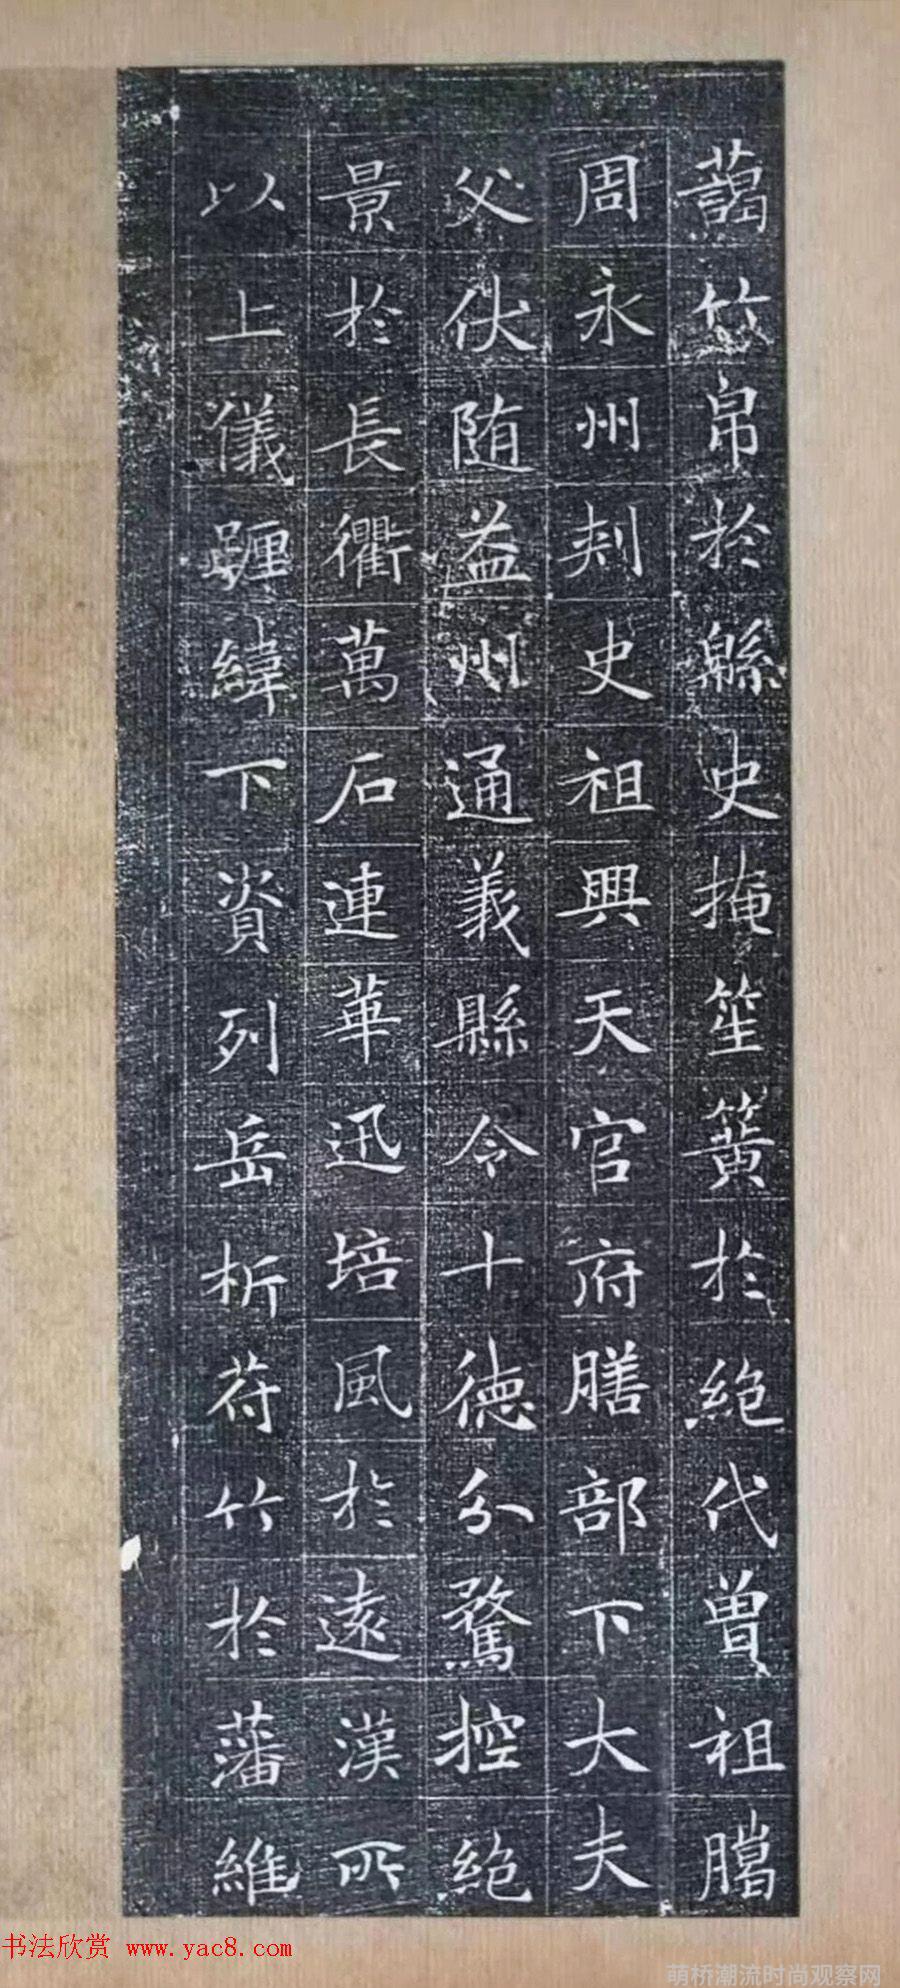 藹竹帛於緜史掩笙簧於絶代曽祖騰
周永州刾史祖興天官府膳部下大夫
父伏随益州通義縣令十德分騖控絶
景於長衢萬石連華迅培風於遠漢所
以上儀躔緯下資列岳析苻竹於藩維
书法欣赏 www.yac8.com
萌桥潮流时尚观察网